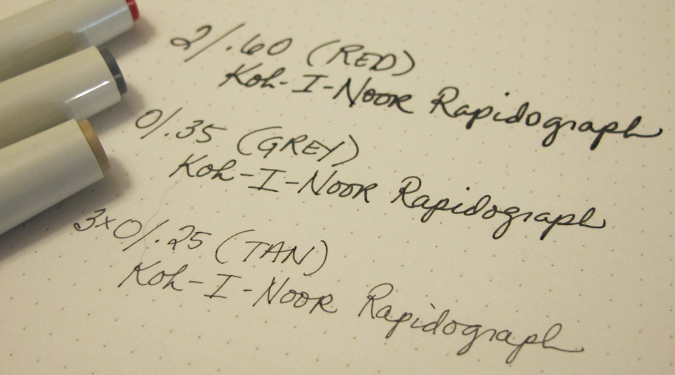 2/.60 (RED)
Koh-I-Noor Rapidograph
0/.35 (GREY)
Koh-I-Noor Rapidograph
3x0/.25 (TAN)
Koh-I-Noor Rapidograph